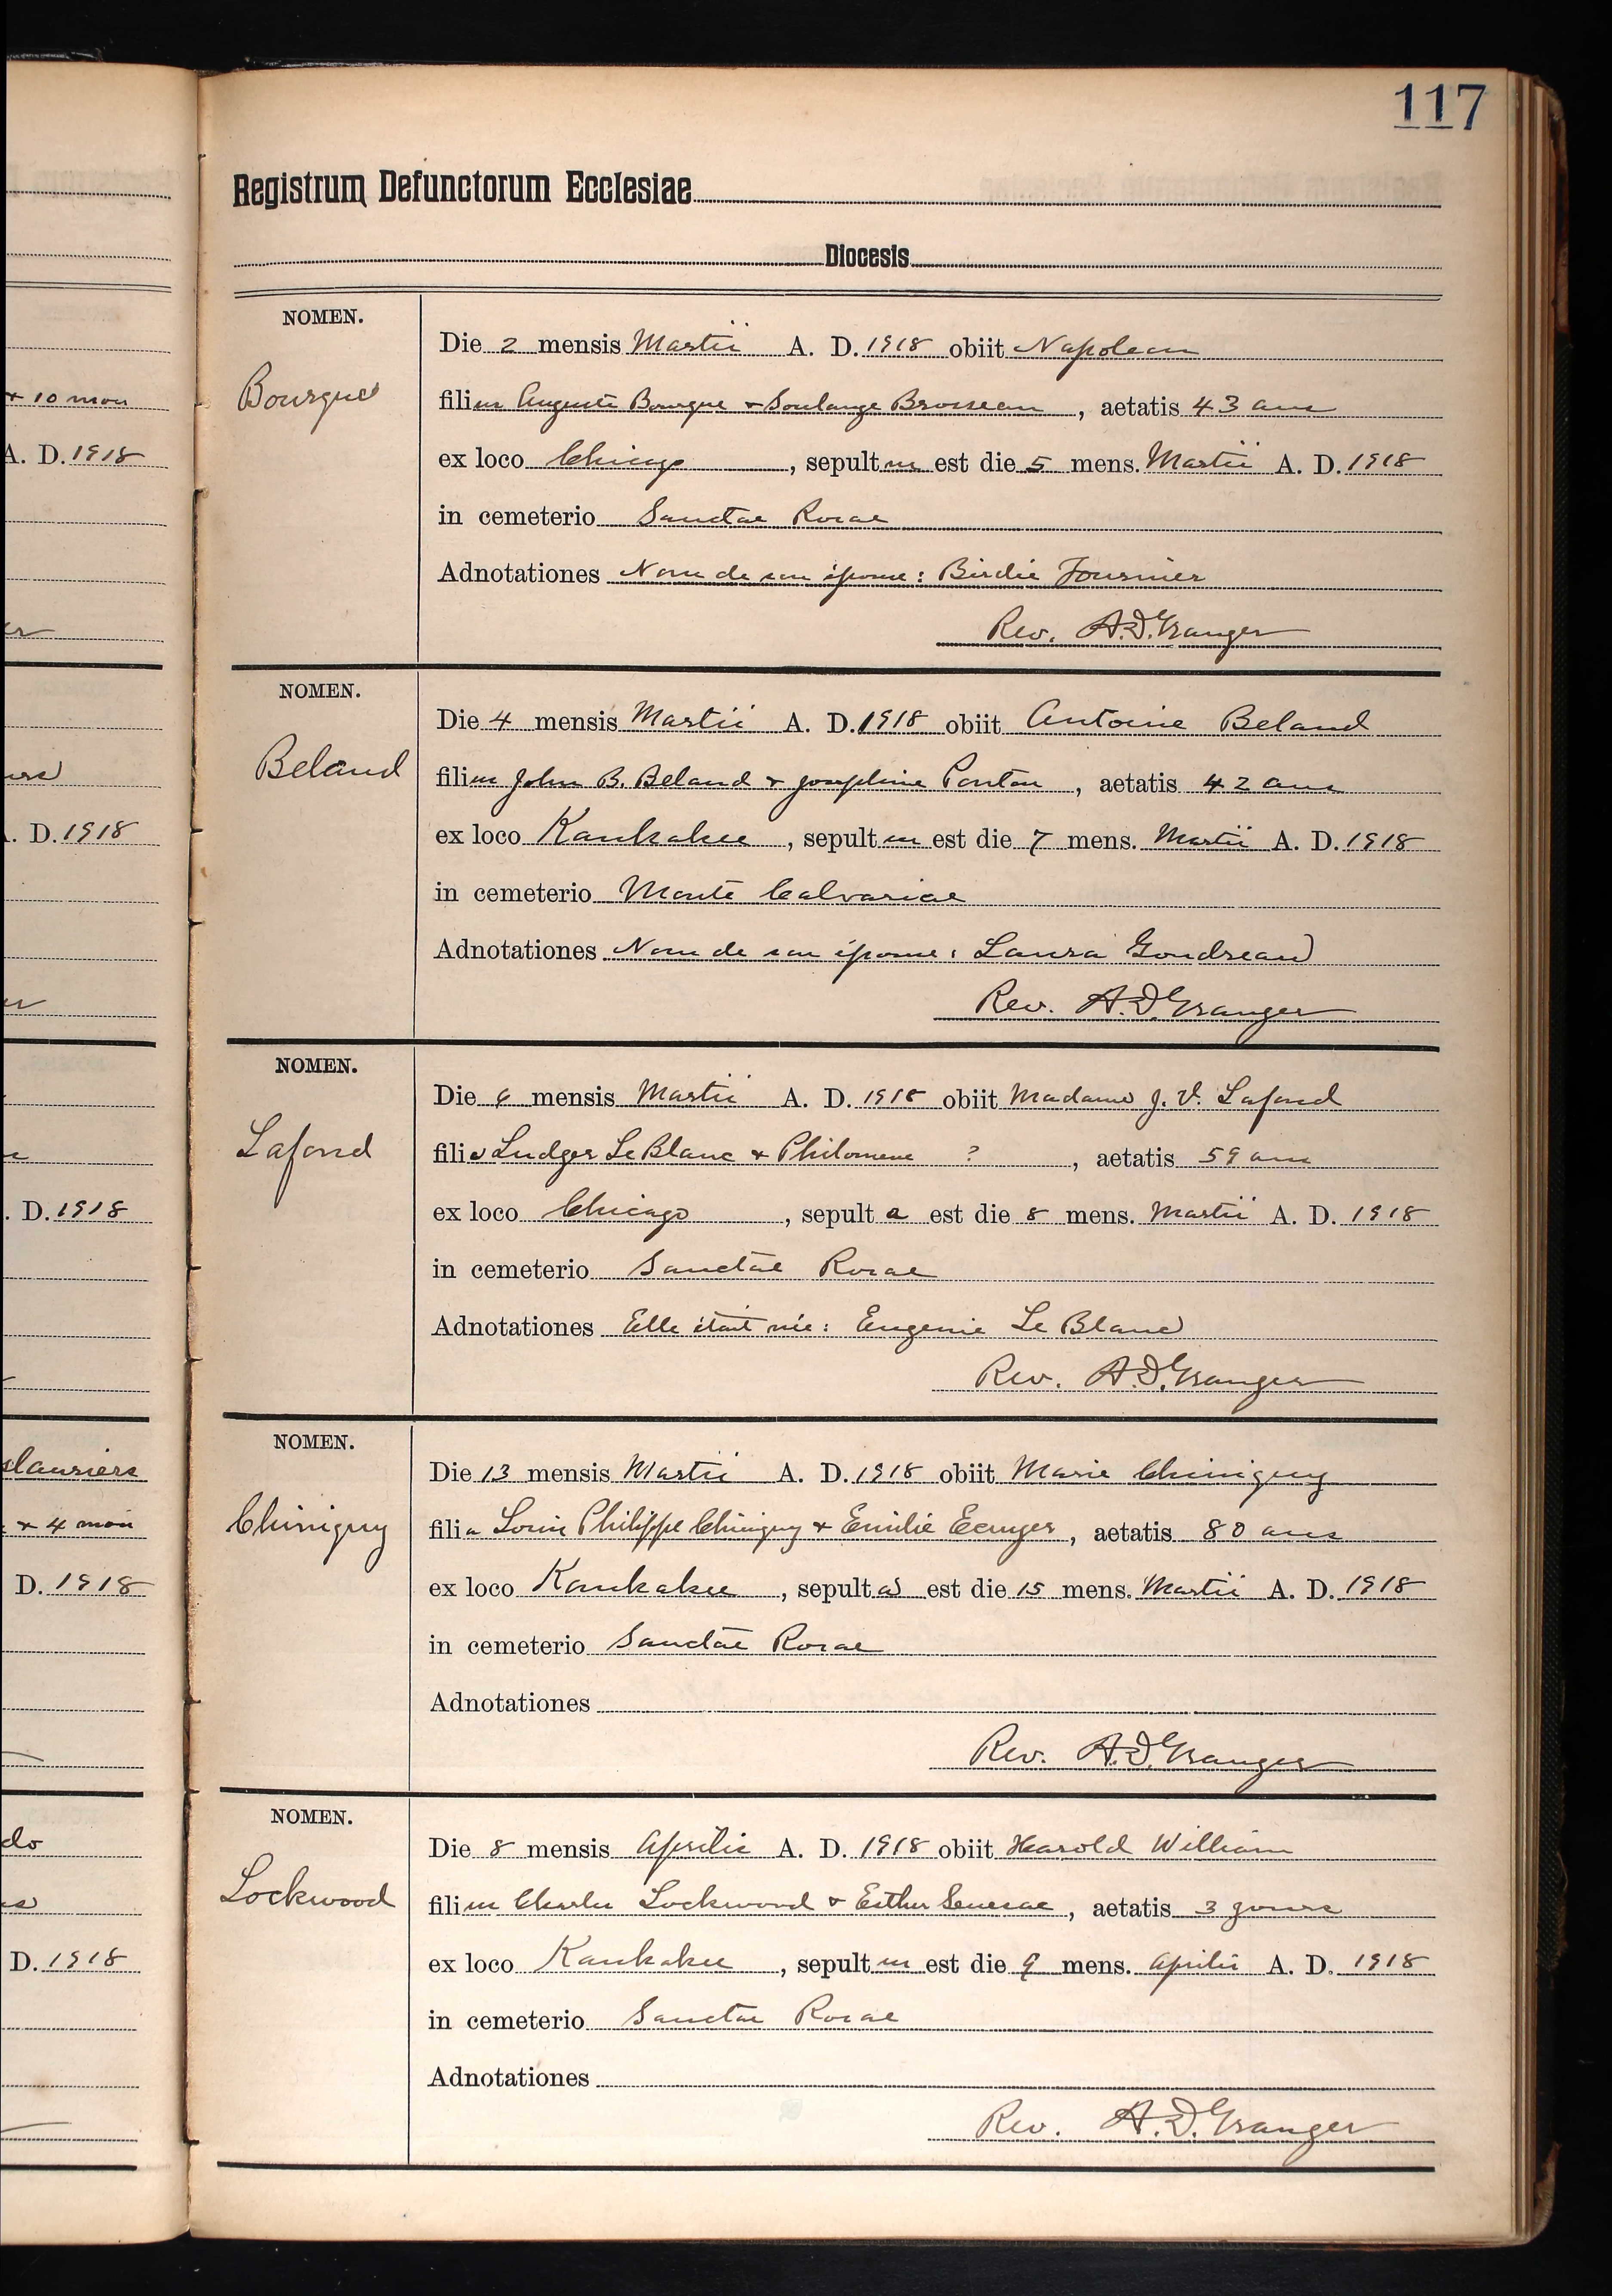 117
Registrum Defunctorum Ecclesiae
Diocesis
NOMEN.
Bourque
Die 2 mensis Martii A. D. 1918 obiit Napoleon
filius Auguste Bourque & Soulange Brosseau, aetatis 43 ans
ex loco Chicago, sepultus est die 5 mens. Martii A. D. 1918
in cemeterio Sanctae Rosae
Adnotationes Nom de son épouse: Birdie Fournier
Rev. A.D. Granger
NOMEN.
Beland
Die 4 mensis Martii A. D. 1918 obiit Antoine Beland
filius John B. Beland & Josephine Ponton, aetatis 42 ans
ex loco Kankakee, sepultus est die 7 mens. Martii A. D. 1918
in cemeterio Monte Calvariae
Adnotationes Nom de son épouse: Laura Goudreau
Rev. A.D. Granger
NOMEN.
Lafond
Die 6 mensis Martii A. D. 1918 obiit Madame J. V. Lafond
filia Ludger LeBlanc & Philomene ?, aetatis 59 ans
ex loco Chicago, sepulta est die 8 mens. Martii A. D. 1918
in cemeterio Sanctae Rosae
Adnotationes Elle était née: Eugenie Le Blanc
Rev. A.D. Granger
NOMEN.
Chiniquy
Die 13 mensis Martii A. D. 1918 obiit Marie Chiniquy
filia Louis Philippe Chiniquy & Emilie, aetatis 80 ans
ex loco Kankakee, sepulta est die 15 mens. Martii A. D. 1918
in cemeterio Sanctae Rosae
Adnotationes
Rev. A.D. Granger
NOMEN.
Lockwood
Die 8 mensis Aprilis A. D. 1918 obiit Harold William
filius Charles Lockwood & Esther Senesac, aetatis 3 jours
ex loco Kankakee, sepultus est die 9 mens. Aprilis A. D. 1918
in cemeterio Sanctae Rosae
Adnotationes
Rev. A.D. Granger